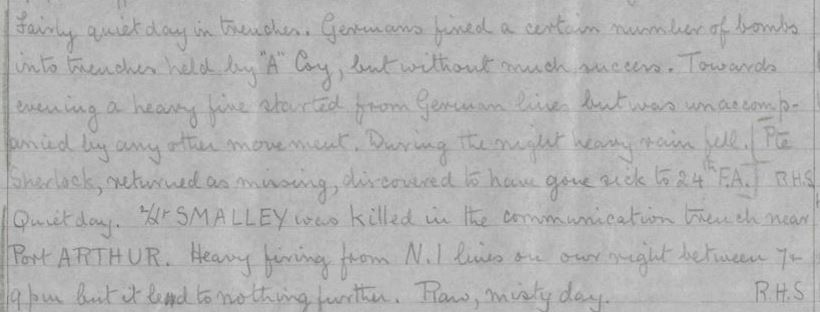 Fairly quiet day in trenches. Germans fired a certain number of bombs
into trenches held by "A" Coy, but without much success. Towards
evening a heavy fire started from German lines but was unaccomp-
anied by any other movement. During the night heavy rain fell. [Pte
Sherlock, returned as missing, discovered to have gone sick to 24th F.A.] R.H.S
Quiet day. 2/Lt SMALLEY was killed in the communication trench near
Port ARTHUR. Heavy firing from N.1 lines on our right between 7 &
9 pm but it led to nothing further. Raw, misty day. R.H.S